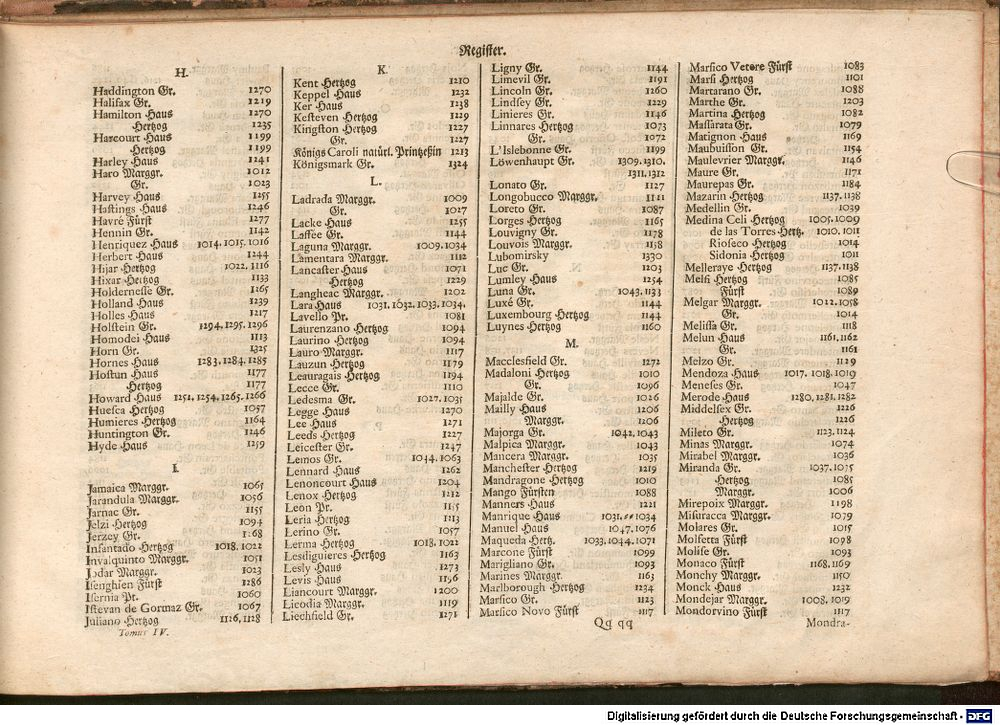 Register.
H.
Haddington Gr. 1270
Halifax Gr. 1219
Hamilton Haus 1270
Hertzog 1235
Harcourt Haus 1199
Hertzog 1199
Harley Haus 1241
Haro Marggr. 1012
Gr. 1023
Harvey Haus 1255
Hastings Haus 1246
Havré Fürst 1277
Hennin Gr. 1142
Henriquez Haus 1014. 1015. 1016
Herbert Haus 1244
Hijar Hertzog 1022. 1116
Hixar Hertzog 1133
Holdernesse Gr. 1265
Holland Haus 1239
Holles Haus 1217
Holstein Gr. 1294. 1295. 1296
Homodei Haus 1113
Horn Gr. 1325
Hornes Haus 1283. 1284. 1285
Hostun Haus 1177
Hertzog 1177
Howard Haus 1251, 1254. 1265. 1266
Huesca Hertzog 1057
Humieres Hertzog 1164
Huntington Gr. 1246
Hyde Haus 1259
I.
Jamaica Marggr. 1065
Jarandula Marggr. 1056
Jarnac Gr. 1155
Jelzi Hertzog 1094
Jerzey Gr. 1268
Infantado Hertzog 1018. 1022
Invalquinto Marggr. 1051
Jodar Marggr. 1023
Isenghien Fürst 1286
Isernia Pr. 1060
Istevan de Gormaz Gr. 1067
Juliano Hertzog 1126, 1128
Tomus IV.
K.
Kent Hertzog 1210
Keppel Haus 1232
Ker Haus 1238
Kesteven Hertzog 1229
Kingston Hertzog 1227
Gr. 1227
Königs Caroli natürl. Printzeßin 1213
Königsmark Gr. 1324
L.
Ladrada Marggr. 1009
Gr. 1027
Lacke Haus 1255
Laffée Gr. 1144
Laguna Marggr. 1009. 1034
Lamentara Marggr. 1112
Lancaster Haus 1071
Hertzog 1229
Langheac Marggr. 1202
Lara Haus 1031. 1032. 1033. 1034.
Lavello Pr. 1081
Laurenzano Hertzog 1094
Laurino Hertzog 1094
Lauro Marggr. 1117
Lauzun Hertzog 1179
Leauragais Hertzog 1194
Lecce Gr. 1110
Ledesma Gr. 1027. 1035
Legge Haus 1270
Lee Haus 1271
Leeds Hertzog 1227
Leicester Gr. 1247
Lemos Gr. 1044. 1063
Lennard Haus 1262
Lenoncourt Haus 1204
Lenox Hertzog 1212
Leon Pr. 1155
Leria Hertzog 1113
Lerino Gr. 1057
Lerma Hertzog 1018. 1022
Lesdiguieres Hertzog 1163
Lesly Haus 1273
Levis Haus 1196
Liancourt Marggr. 1200
Licodia Marggr. 1119
Liechfield Gr. 1271
Ligny Gr. 1144
Limevil Gr. 1191
Lincoln Gr. 1260
Lindsey Gr. 1229
Linieres Gr. 1146
Linnares Hertzog 1073
Gr. 1072
L'Islebonne Gr. 1199
Löwenhaupt Gr. 1309. 1310.
1311. 1312
Lonato Gr. 1127
Longobucco Marggr. 1111
Loreto Gr. 1087
Lorges Hertzog 1165
Louvigny Gr. 1178
Louvois Marggr. 1158
Lubomirsky 1330
Luc Gr. 1203
Lumley Haus 1254
Luna Gr. 1043. 1133
Luxé Gr. 1144
Luxembourg Hertzog 1144
Luynes Hertzog 1160
M.
Macclesfield Gr. 1272
Madaloni Hertzog 1010
Gr. 1096
Majalde Gr. 1026
Mailly Haus 1206
Marggr. 1206
Majorga Gr. 1042, 1043
Malpica Marggr. 1043
Mancera Marggr. 1035
Manchester Hertzog 1219
Mandragone Hertzog 1010
Mango Fürsten 1088
Manners Haus 1221
Manrique Haus 1031 -- 1034
Manuel Haus 1047. 1076
Maqueda Hertz. 1033. 1044. 1071
Marcone Fürst 1099
Marigliano Gr. 1093
Marines Marggr. 1163
Marlborough Hertzog 1234
Marsico Gr. 1123
Marsico Novo Fürst 1117
Qq qq
Marsico Vetere Fürst 1083
Marsi Hertzog 1101
Martarano Gr. 1088
Marthe Gr. 1203
Martina Hertzog 1082
Massarata Gr. 1079
Matignon Haus 1169
Maubuisson Gr. 1154
Maulevrier Marggr. 1146
Maure Gr. 1171
Maurepas Gr. 1184
Mazarin Hertzog 1137. 1138
Medellin Gr. 1039
Medina Celi Hertzog 1005. 1009
de las Torres Hertz. 1010. 1011
Rioseco Hertzog 1014
Sidonia Hertzog 1011
Melleraye Hertzog 1137. 1138
Melfi Hertzog 1085
Fürst 1089
Melgar Marggr. 1012. 1058
Gr. 1014
Melissa Gr. 1118
Melun Haus 1161. 1162
Gr. 1161
Melzo Gr. 1129
Mendoza Haus 1017. 1018. 1019
Meneses Gr. 1047
Merode Haus 1280. 1281. 1282
Middelsex Gr. 1226
Hertzog 1226
Mileto Gr. 1123. 1124
Minas Marggr. 1074
Mirabel Marggr. 1036
Miranda Gr. 1037. 1075
Hertzog 1085
Marggr. 1006
Mirepoix Marggr. 1198
Misuracca Marggr. 1079
Molares Gr. 1015
Molfetta Fürst 1098
Molise Gr. 1093
Monaco Fürst 1168. 1169
Monchy Marggr. 1150
Monck Haus 1232
Mondejar Marggr. 1008. 1019
Mondorvino Fürst 1117
Mondra-
Digitalisierung gefördert durch die Deutsche Forschungsgemeinschaft - DFG